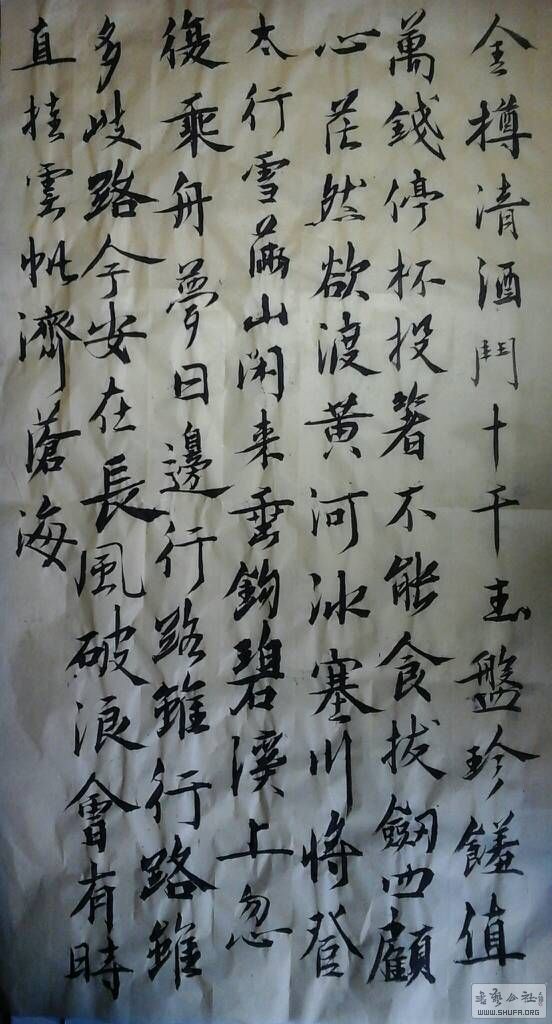 金樽清酒鬥十千玉盤珍饈值
萬錢停杯投箸不能食拔劔四顧
心茫然欲渡黄河冰塞川將登
太行雪滿山閑来垂鈎碧溪上忽
復乘舟夢日邊行路難行路難
多歧路今安在長風破浪會有時
直挂雲帆濟滄海
书艺公社
WWW.SHUFA.ORG